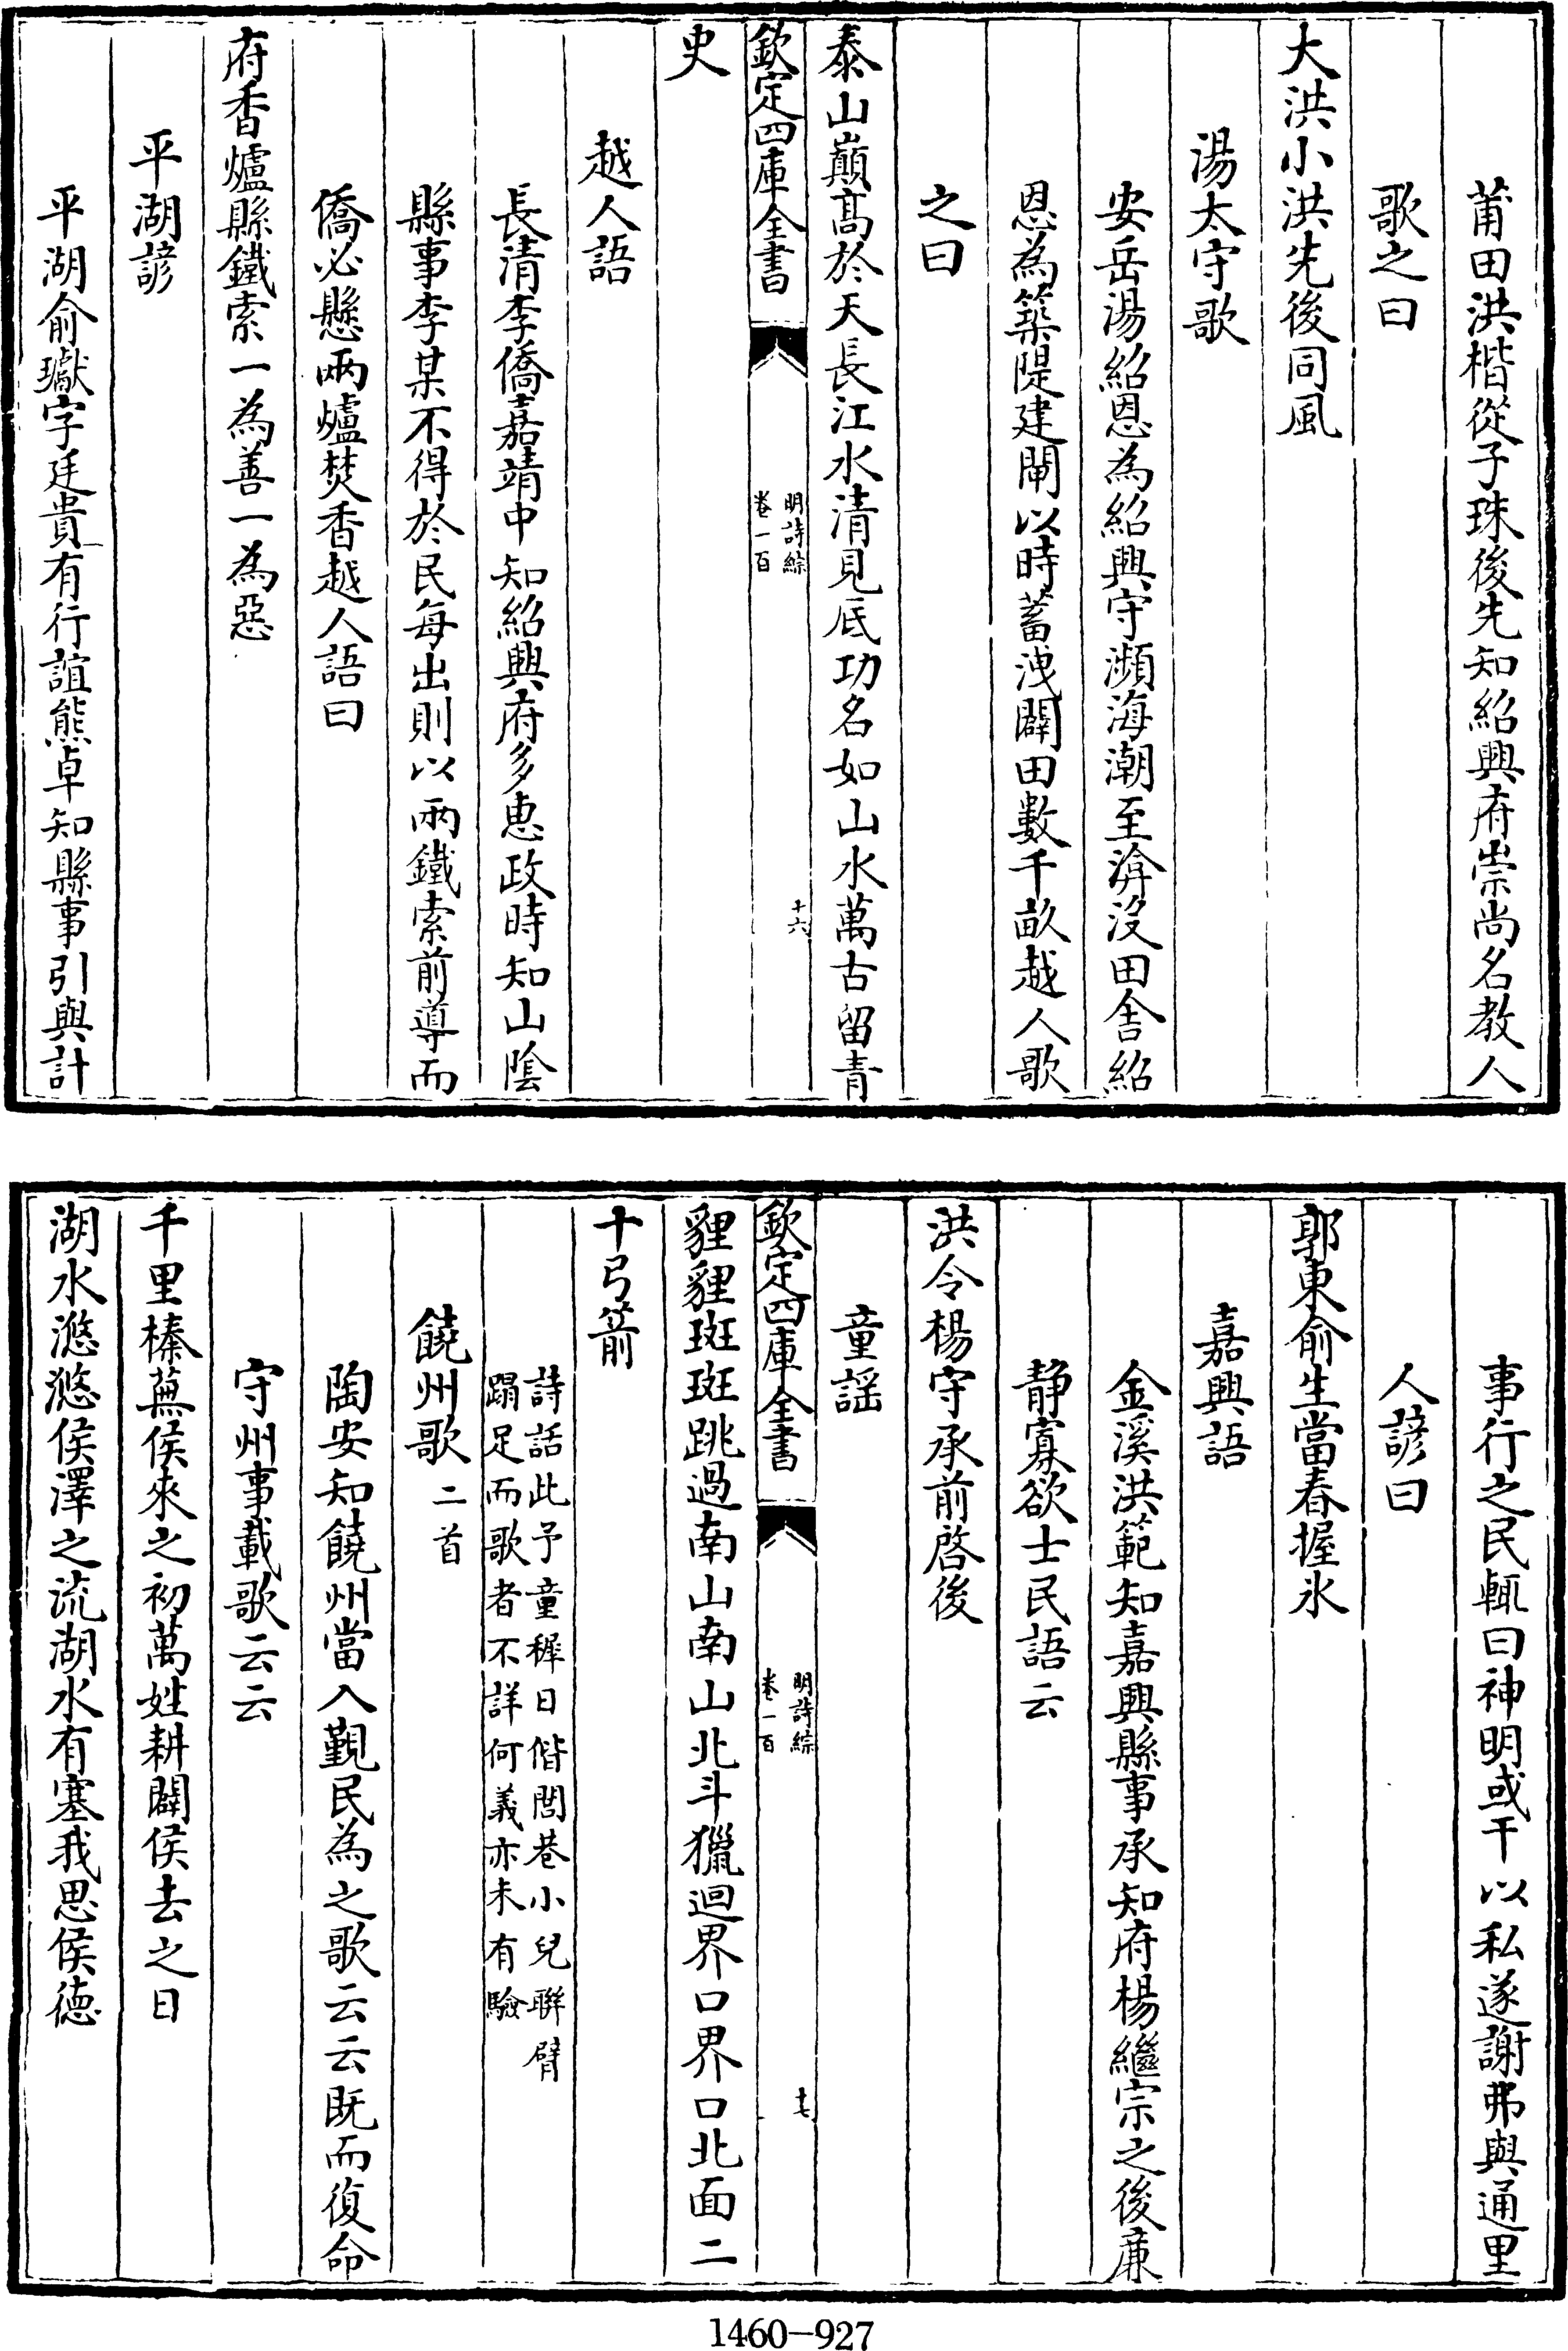 莆田洪楷從子珠後先知紹興府崇尚名教人
歌之曰
大洪小洪先後同風
湯太守歌
安岳湯紹恩為紹興守瀕海潮至渰沒田舍紹
恩為築隄建閘以時蓄洩闢田數千畝越人歌
之曰
泰山巔髙於天長江水清見底功名如山水萬古留青
欽定四庫全書
明詩綜
卷一百
十六
史
越人語
長清李僑嘉靖中知紹興府多惠政時知山陰
縣事李某不得於民每出則以兩鐵索前導而
僑必懸兩爐焚香越人語曰
府香爐縣鐵索一為善一為惡
平湖諺
平湖俞瓛字廷貴有行誼熊卓知縣事引與計
事行之民輒曰神明或干以私遂謝弗與通里
人諺曰
郭東俞生當春握氷
嘉興語
金溪洪範知嘉興縣事承知府楊繼宗之後廉
静寡欲士民語云
洪令楊守承前啓後
童謡
欽定四庫全書
明詩綜
卷一百
十七
貍貍斑斑跳過南山南山北斗獵迴界口界口北面二
十弓箭
詩話此予童穉日偕閭巷小兒聨臂
蹋足而歌者不詳何義亦未有驗
饒州歌二首
陶安知饒州當入覲民為之歌云云既而復命
守州事載歌云云
千里榛蕪侯來之初萬姓耕闢侯去之日
湖水滺滺侯澤之流湖水有塞我思侯德
1460-927